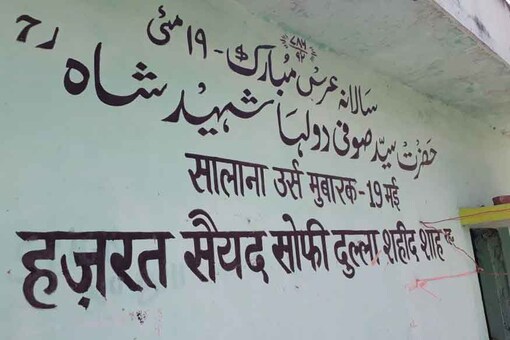 ۷۸۶
۹۲
سالانہ عرس مبارک - ۱۹ مئی
حضرت سیّد صوفی دولہا شہید شاہ رح
सालाना उर्स मुबारक - 19 मई
हज़रत सैयद सोफी दुल्ला शहीद शाह रह०